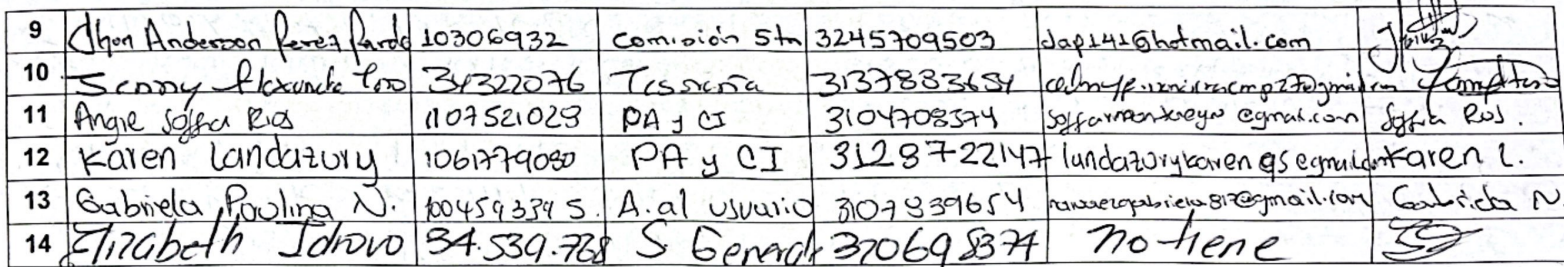 9 Jhon Anderson Perez Pardo 10306932 comisión Stn 3245709503 Jap141@hotmail.com
10 Jenny Alexandra Toro 34322076 Tesoreria 3137883654
11 Angie Soffia Rios 1107521029 PA y CI 3104708574 Soffia Rios.
12 Karen Landazury 1061779080 PA y CI 3128722147 landazurykaren95@gmail.com Karen L.
13 Gabriela Paulina N. 1004593395. A. al usuario 3107839654 Gabriela N
14 Elizabeth Idrovo 34.539.768 S General no tiene